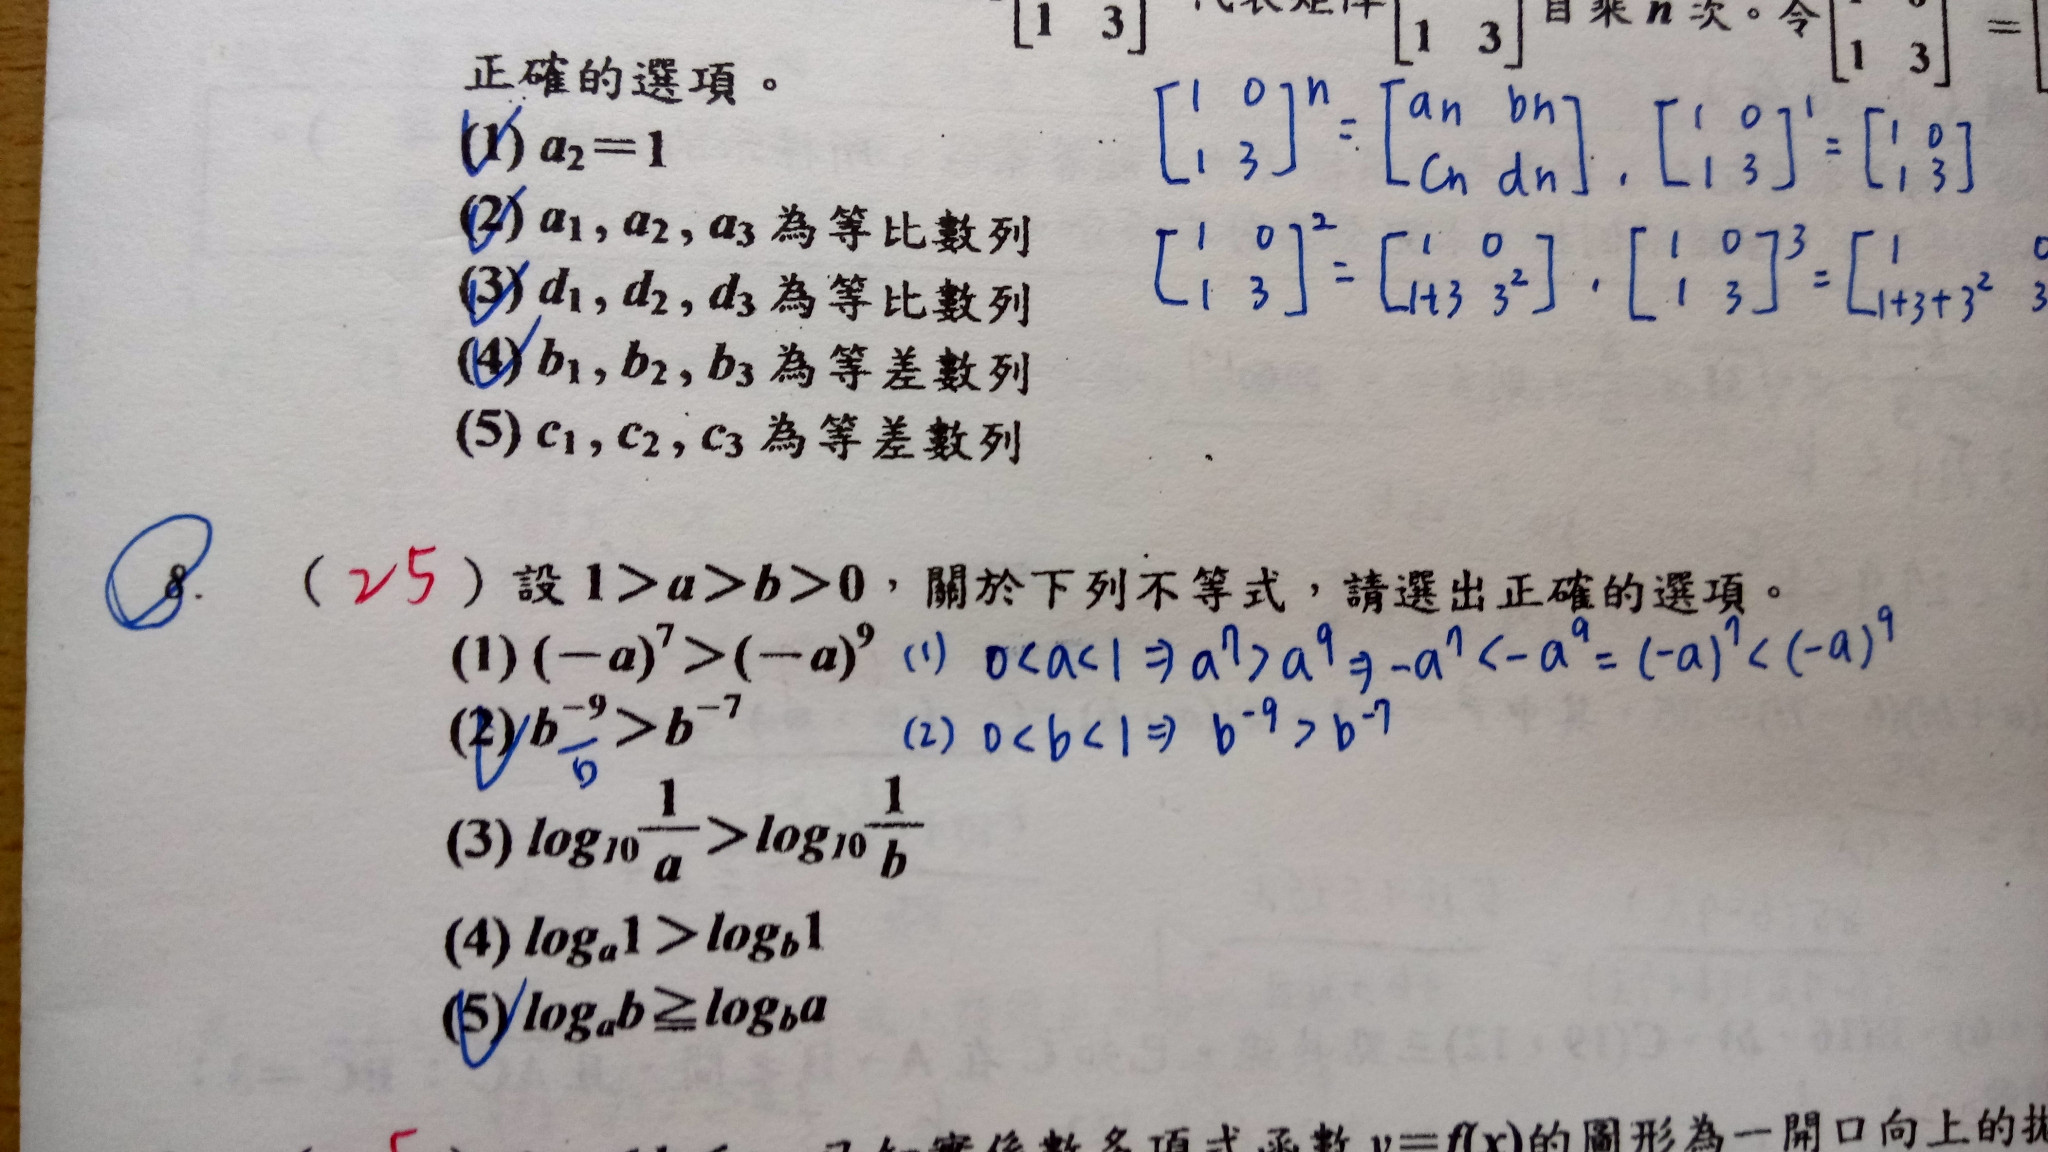 [1 3] [1 3] 自乘 n 次。令 [1 3] =
正確的選項。
(1) a₂=1
(2) a₁, a₂, a₃ 為等比數列
(3) d₁, d₂, d₃ 為等比數列
(4) b₁, b₂, b₃ 為等差數列
(5) c₁, c₂, c₃ 為等差數列
[1 0; 1 3]ⁿ = [an bn; Cn dn], [1 0; 1 3]¹ = [1 0; 1 3]
[1 0; 1 3]² = [1 0; 1+3 3²], [1 0; 1 3]³ = [1 0; 1+3+3² 3
8. (25) 設 1>a>b>0,關於下列不等式,請選出正確的選項。
(1) (−a)⁷>(−a)⁹ (1) 0<a<1⇒a⁷>a⁹⇒-a⁷<-a⁹=(-a)⁷<(-a)⁹
(2) b⁻⁹>b⁻⁷ (2) 0<b<1⇒ b⁻⁹>b⁻⁷
b
(3) log₁₀ 1/a > log₁₀ 1/b
(4) logₐ1>log_b1
(5) logₐb≧log_ba
5) 已知實係數多項式函數 y=f(x)的圖形為一開口向上的拋